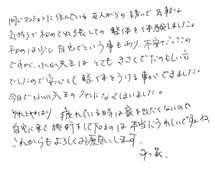 同じマンションに住んでいる友人からの誘いで気軽な
気持ちで初めて出張しての整体を体験しました。
初めは少し自宅という事もあり、不安だったの
ですが、小山先生はとてもきさくでたのもしい方
でしたので安心して施術をうける事ができました。
今日で小山先生のファンになってしまいました。
それとやはり、疲れている時は家を出たくないので
自宅に来て施術をして下さるのは本当にうれしいですね。
これからもよろしくお願いします。